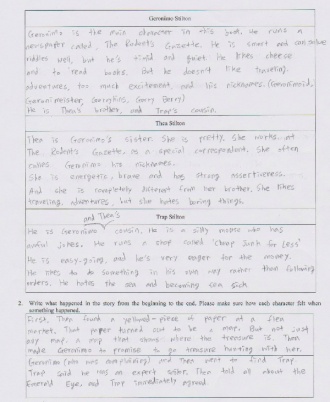 Geronimo Stilton
Geronimo is the main character in this book. He runs a
newspaper called, The Rodent's Gazette. He is smart and can solve
riddles well, but he's kind and quiet. He likes cheese
and to read books. But he doesn't like traveling,
adventures, too much excitement, and his nicknames. (Geronimoid,
Gerry Berry)
He is Thea's brother, and Trap's cousin.
Thea Stilton
Thea is Geronimo's sister. She is pretty. She works at
The Rodent's Gazette, as a special correspondent. She often
calls Geronimo his nicknames.
She is energetic, brave and has strong assertiveness.
And she is completely different from her brother. She likes
traveling, adventures, but she hates boring things.
Trap Stilton
and Thea's
He is Geronimo cousin. He is a silly mouse who has
awful jokes. He runs a shop called 'Cheap Junk for Less'
He is easy-going, and he's very eager for the money.
He likes to do something in his own way rather than following
orders. He hates the sea and becoming sea sick
2. Write what happened in the story from the beginning to the end. Please make sure how each character felt when
something happened.
First, Thea found a yellowed-piece of paper at a flea
market. That paper turned out to be a map. But not just
any map, a map that shows where the treasure is. Thea
made Geronimo to promise to go treasure hunting with her.
Geronimo (who was complaining) and Thea went to find Trap.
Trap said he was an expert sailor. Thea told all about the
Emerald Eye, and Trap immediately agreed